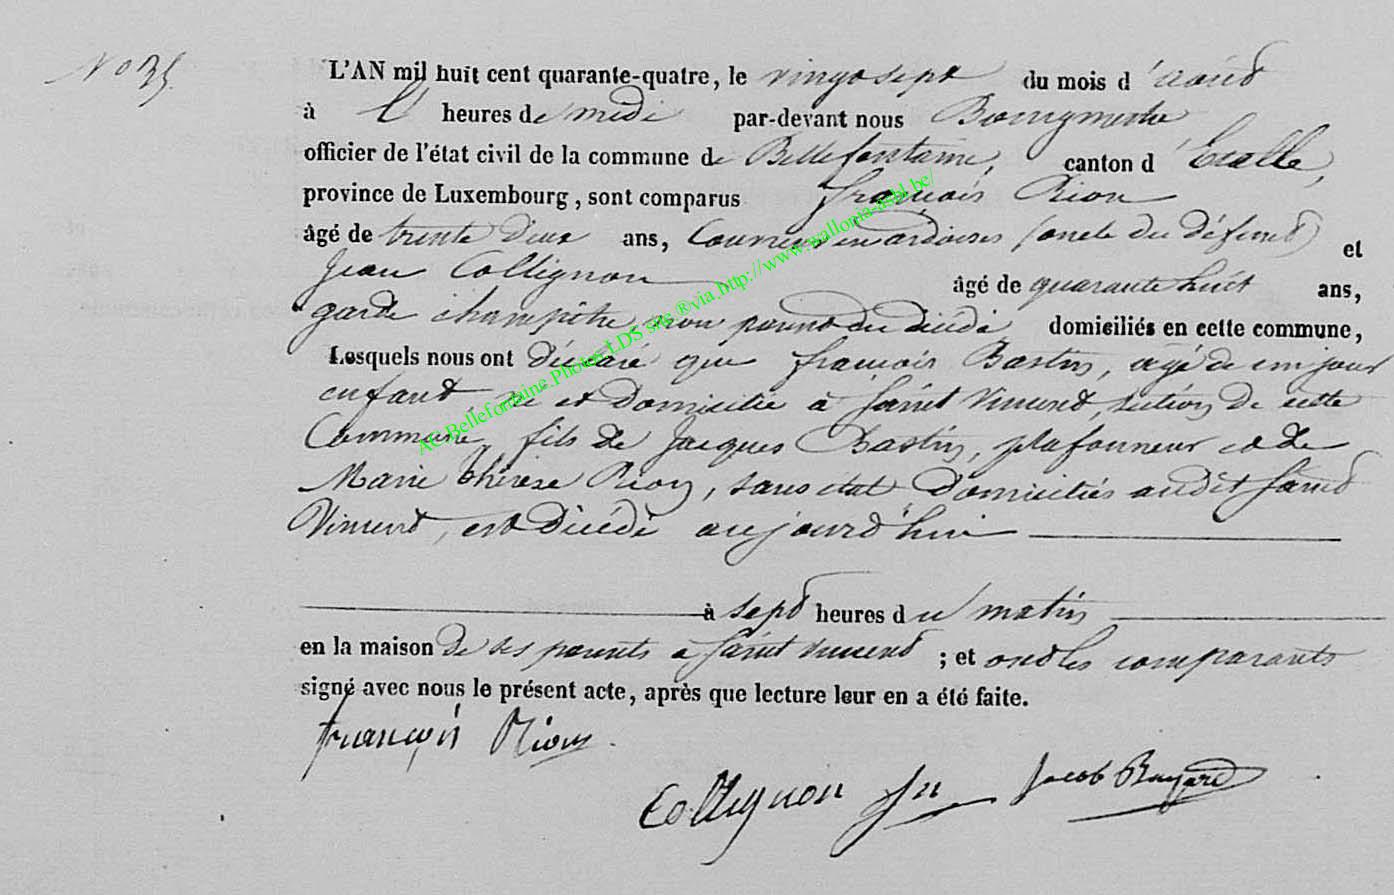 N° 35.
L'AN mil huit cent quarante-quatre, le vingt sept du mois d'août
à heures de midi par-devant nous Bourgmestre
officier de l'état civil de la commune de Bellefontaine, canton d'Etalle,
province de Luxembourg, sont comparus françois Rion
âgé de trente deux ans, Couvreur en ardoises (oncle du défunt) et
Jean Collignon âgé de quarante huit ans,
garde champêtre, non parent du décédé domiciliés en cette commune,
Lesquels nous ont déclaré que françois Bastin, agé de un jour
enfant, né et domicilié à Saint Vincent, section de cette
Commune, fils de Jacques Bastin, plafonneur et de
Marie thérèse Rion, sans état domiciliés audit Saint
Vincent, est décédé aujourd'hui
à sept heures du matin
en la maison de ses parents à Saint vincent ; et ont les comparants
signé avec nous le présent acte, après que lecture leur en a été faite.
françois Rion.
Collignon Jn Jacob Bayard
AC Bellefontaine Photos LDS sris ®via http://www.wallonia-asbl.be/